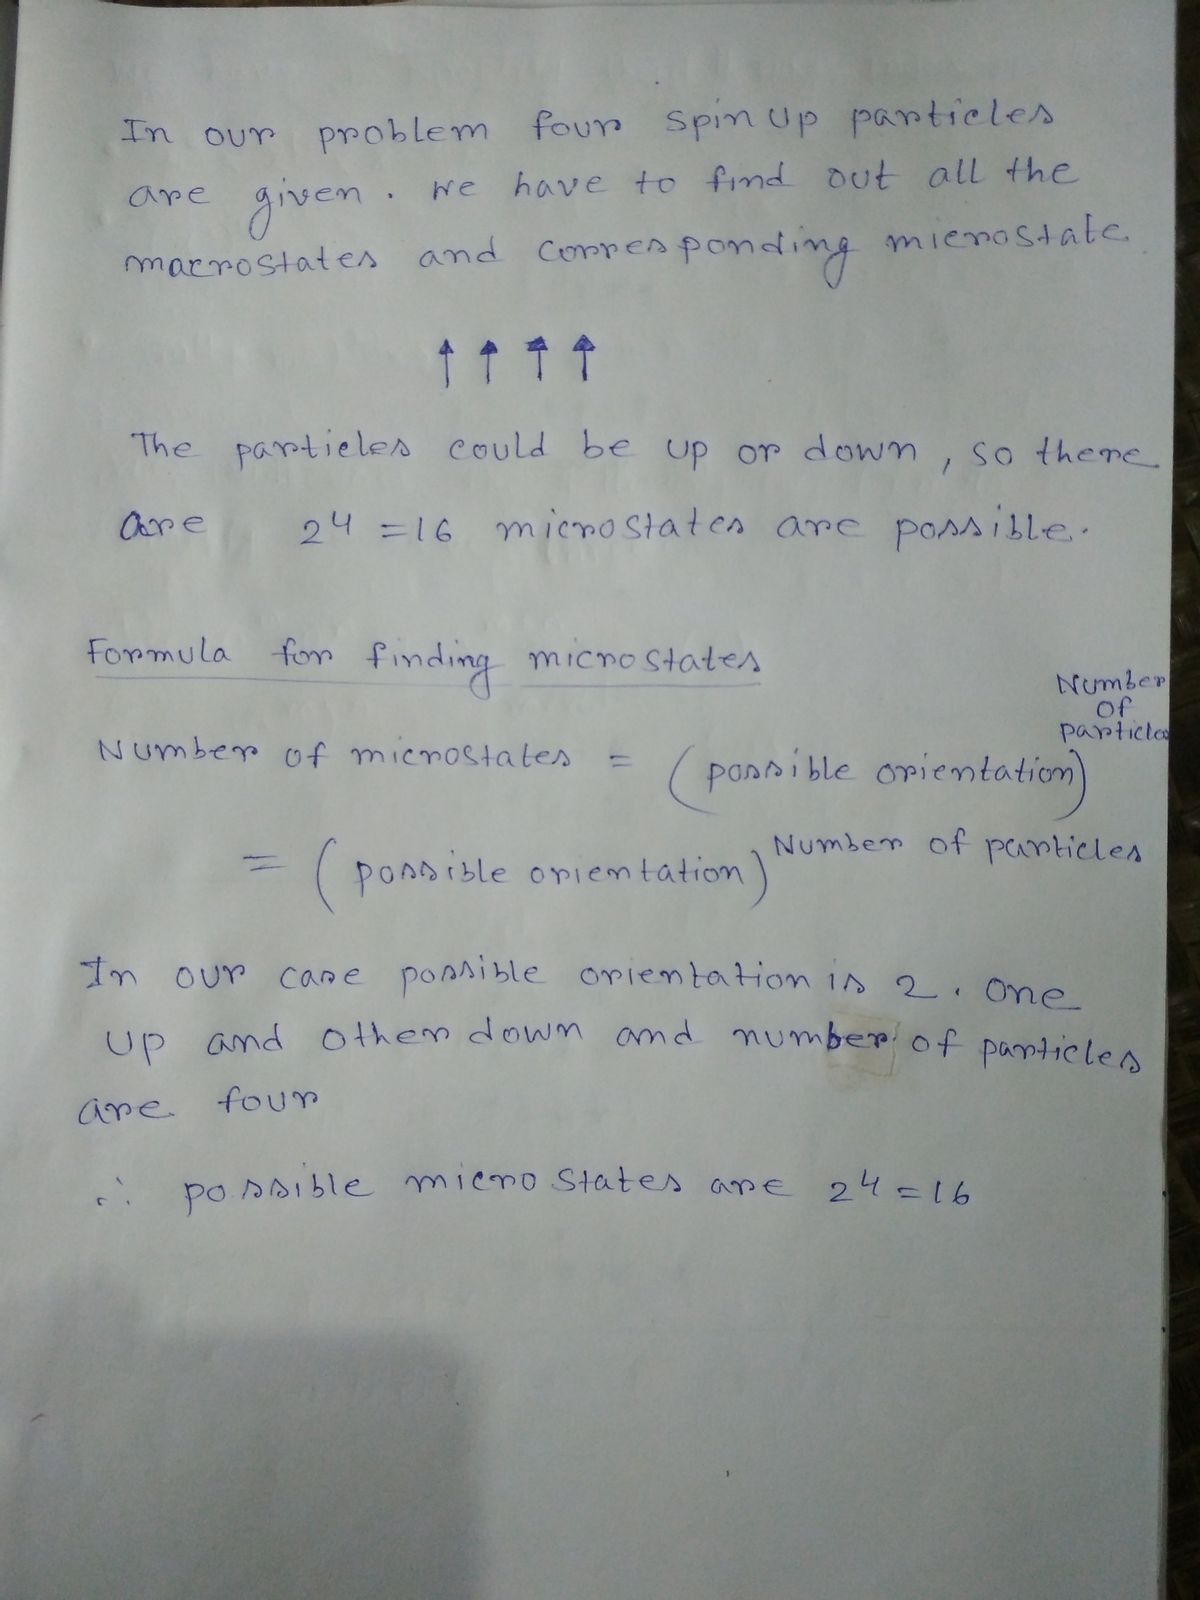 In our problem four spin up particles
are given. We have to find out all the
macrostates and corresponding microstate
↑ ↑ ↑ ↑
The particles could be up or down, so there
are 2⁴ = 16 microstates are possible.
Formula for finding microstates
Number of microstates = (possible orientation)
Number
of
particles
= (possible orientation) Number of particles
In our case possible orientation is 2. One
up and other down and number of particles
are four
∴ possible micro states are 2⁴ = 16